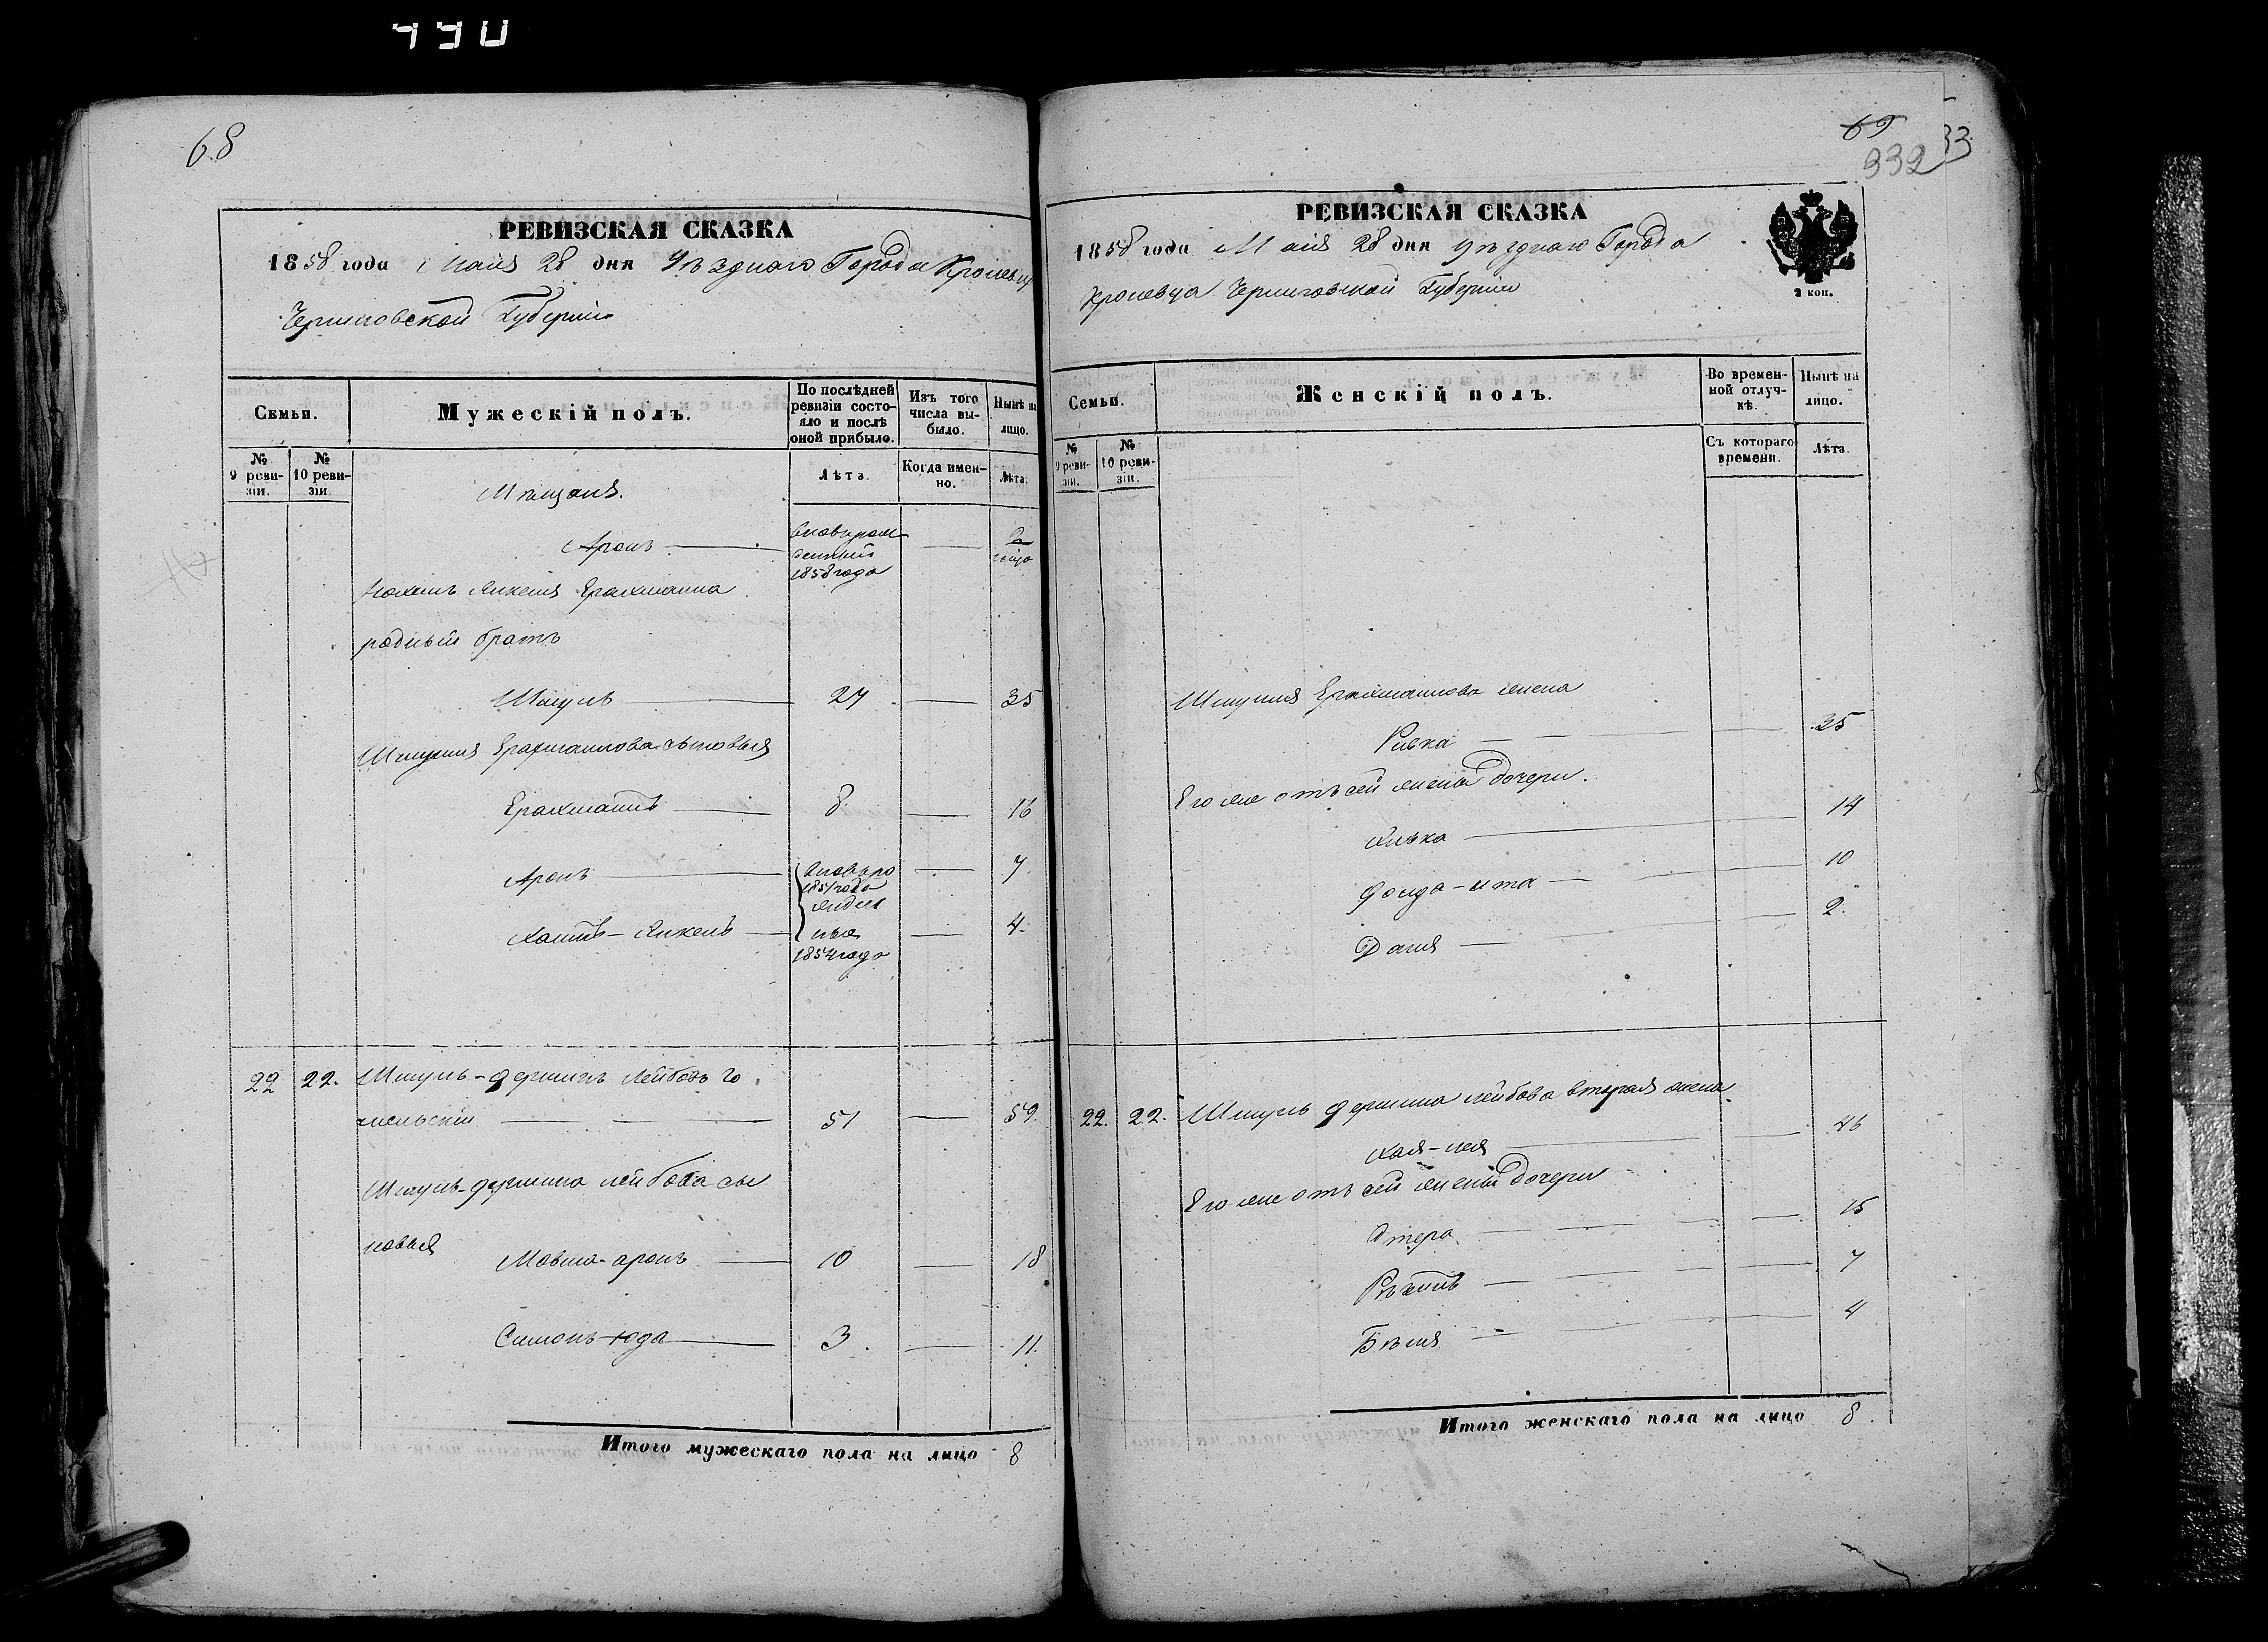 490
68
РЕВИЗСКАЯ СКАЗКА
1858 года Мая 28 дня Уѣзднаго Города Кролевца
Черниговской Губерніи
Семьи.
Мужескій полъ.
По послѣдней ревизіи состояло и послѣ оной прибыло.
Изъ того числа выбыло.
Нынѣ на лицо.
№ 9 ревизіи.
№ 10 ревизіи.
Лѣта.
Когда именно.
Лѣта.
Мѣщане.
Аронъ
вновьрожденный 1858 года
родный братъ
Шмуль 27 35
Шмуиля Ерахмаилова сыновья
Ерахмаилъ 8. 16
Аронъ 7
Хаимъ-Янкель 4.
вновьро
1851 года
жден
ные
1854 года
22 22. Шмуль-Фершель Лейбовъ Го
мельскій 51 59.
Шмуль-Фершеля Лейбова сы
новья
Мовша-Аронъ 10 18
Симонъ-Юда 3. 11.
Итого мужескаго пола на лицо 8
69
332
33
РЕВИЗСКАЯ СКАЗКА
1858 года Мая 28 дня Уѣзднаго Города
Кролевца Черниговской Губерніи
2 коп.
Семьи.
Женскій полъ.
Во временной отлучкѣ.
Нынѣ на лицо.
№ 9 ревизіи.
№ 10 ревизіи.
Съ котораго времени.
Лѣта.
Шмуиля Ерахмаилова жена
Ривка 35
Его же отъ сей жены дочери.
14
10
2.
22. 22. Шмуль Фершеля Лейбова вторая жена.
Хая-Лея 46
Его же отъ сей жены дочери
15
7
4
Итого женскаго пола на лицо 8.